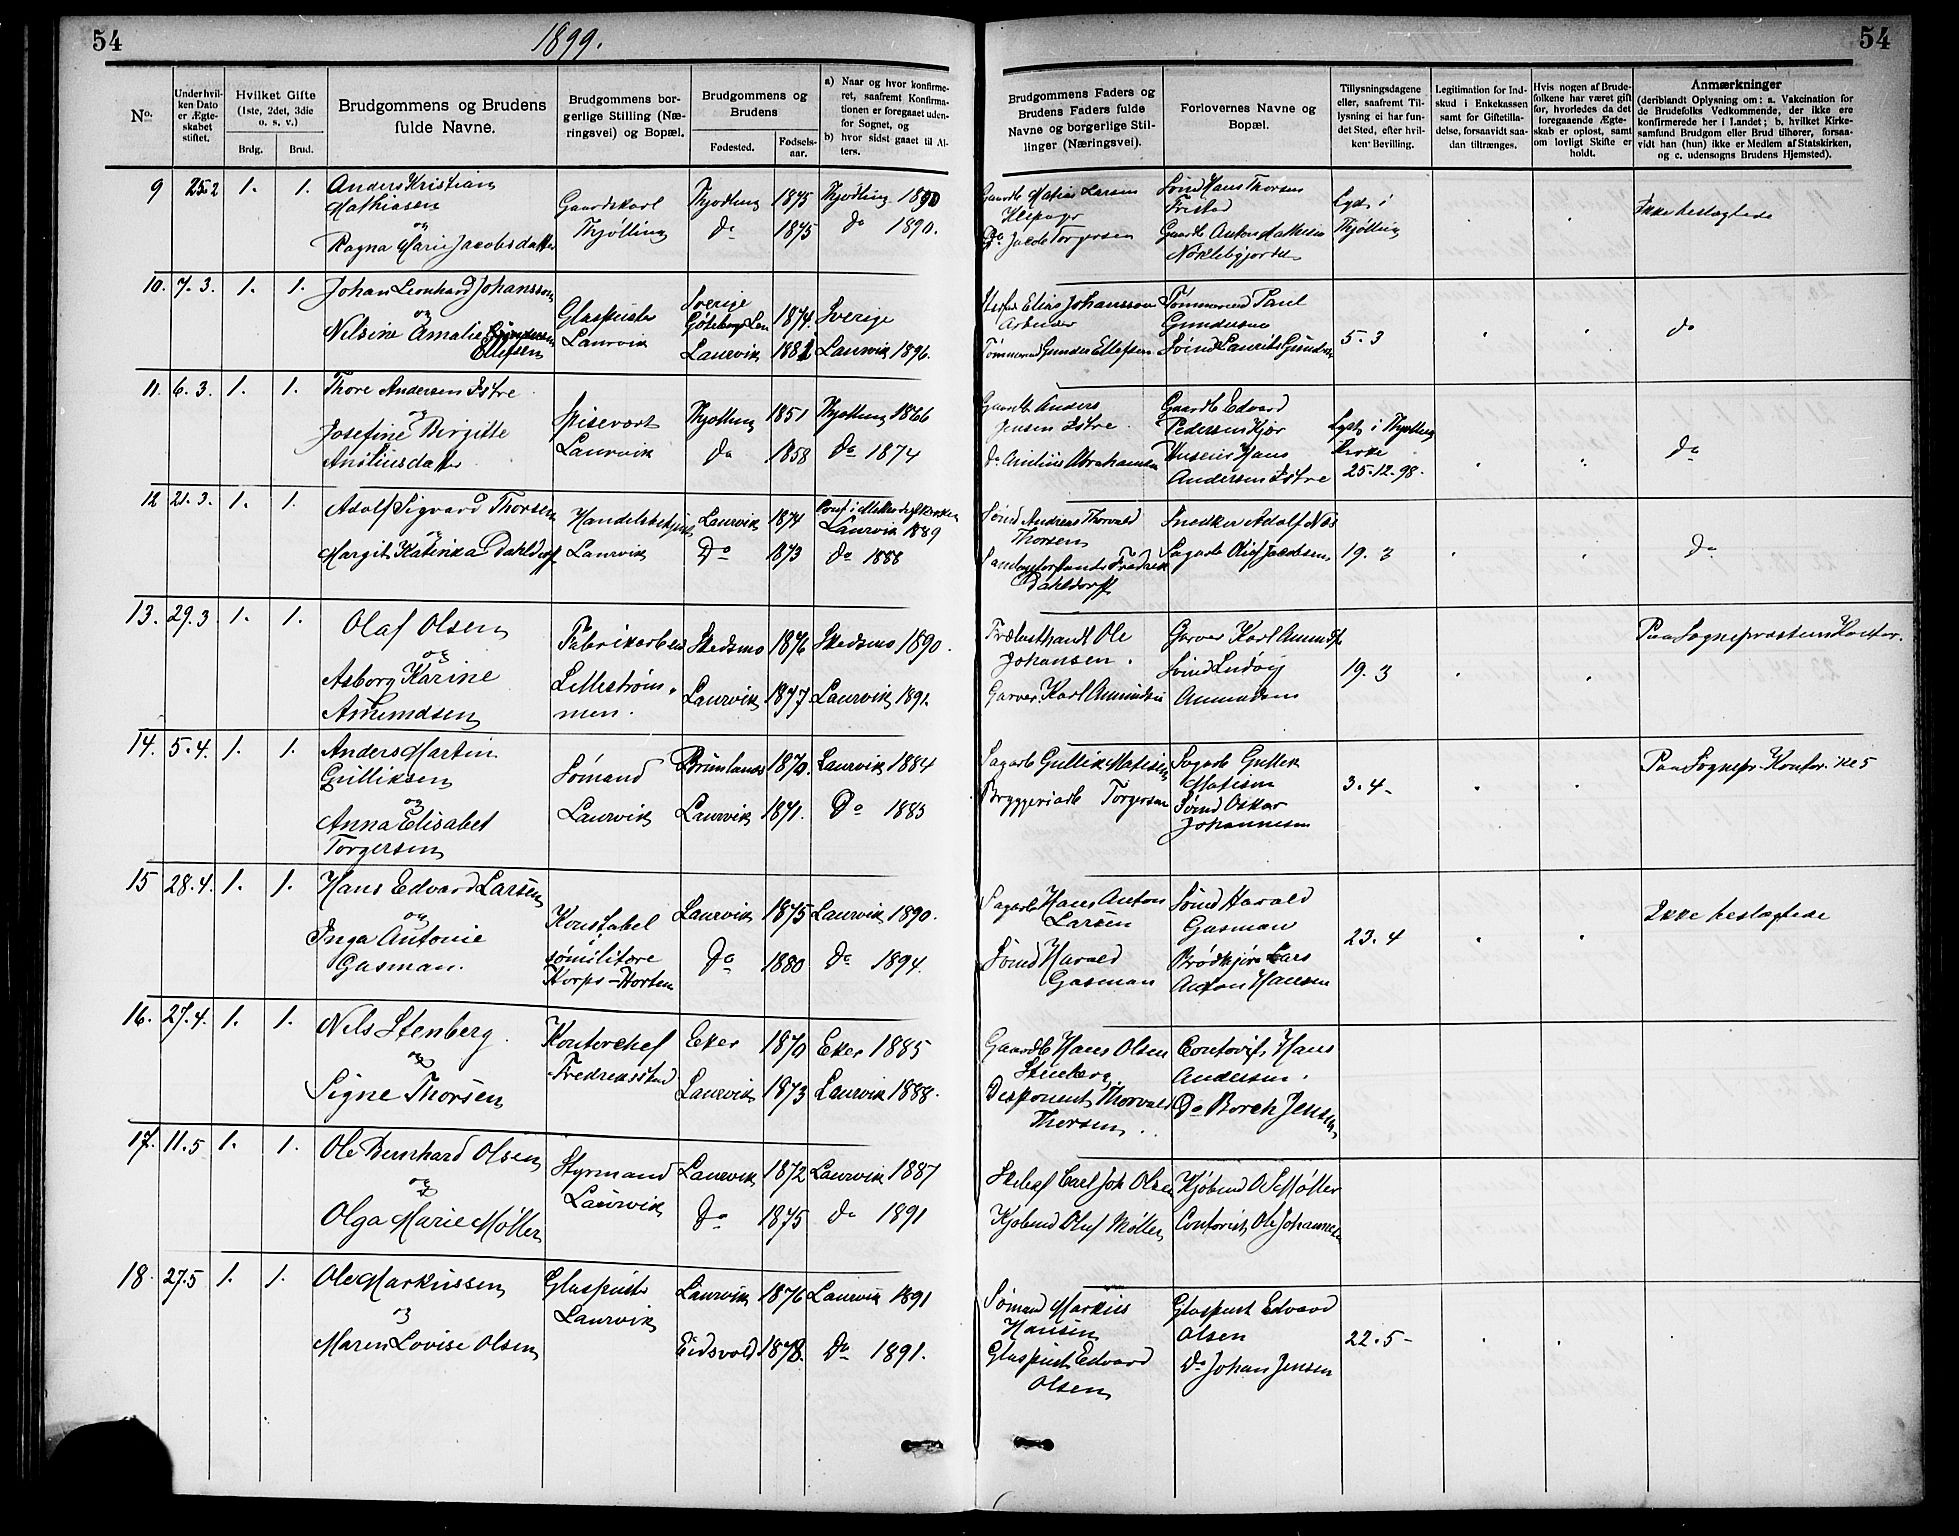 54
1899.
54
No.
Under hvil-
ken Dato
er Ægte-
skabet
stiftet.
Hvilket Gifte
(1ste, 2det, 3die
o. s. v.)
Brdg.
Brud.
Brudgommens og Brudens
fulde Navne.
Brudgommens bor-
gerlige Stilling (Næ-
ringsvei) og Bopæl.
Brudgommens og
Brudens
Fødested.
Fødsels-
aar.
a) Naar og hvor konfirme-
ret, saafremt Konfirma-
tionen er foregaaet uden-
for Sognet, og
b) hvor sidst gaaet til Al-
ters.
Brudgommens Faders og
Brudens Faders fulde
Navne og borgerlige Stil-
linger (Næringsvei).
Forlovernes Navne og
Bopæl.
Tillysningsdagene
eller, saafremt Til-
lysning ei har fun-
det Sted, efter hvil-
ken Bevilling.
Legitimation for Ind-
skud i Enkekassen
samt for Giftetilla-
delse, forsaavidt saa-
dan tiltrænges.
Hvis nogen af Brude-
folkene har været gift
før, hvorledes da det
foregaaende Ægte-
skab er opløst, samt
om lovligt Skifte er
holdt.
Anmærkninger
(deriblandt Oplysning om: a. Vakcination for
de Brudefolks Vedkommende, der ikke ere
konfirmerede her i Landet; b. hvilket Kirke-
samfund Brudgom eller Brud tilhører, forsaa-
vidt han (hun) ikke er Medlem af Statskirken,
og c. udensogns Brudens Hjemsted).
9 25.2 1. 1. Anders Kristian
Mathiasen
og
Ragna Marie Jacobsdatter
Gaardskarl
Thjølling
Thjødling 1875 Thjødling 1890
do 1875 do 1890.
Gaardb Matias Larsen
Klepager
Do Jacob Torgersen
Sømd Hans Thorsen
Fristad
Gaardb Anton Mathisen
Noklebyjordet
Lyst i
Thjølling
Ikke beslægtede
10. 7.3. 1. 1. Johan Leonhard Johansson
og
Nilsine Amalie Gundersen
Ellefsen
Glaspuster
Laurvik
Sverige
Gøteborgs Len 1874. Sverige
Laurvik 1881 Laurvik 1896.
Elias Johansson
Arbeider
Tømmermd Gunder Ellefsen
Tømmermd Paul
Gundersen
Sømd Laurits Gundersen
5.3
do
11. 6.3. 1. 1. Thore Andersen Istre
og
Josefine Birgitte
Anstiusdatter
Spisevært
Laurvik
Thjølling 1851 Thjølling 1866
do 1858 do 1874
Gaardb Anders
Jensen Istre.
do Abrahamsen
Gaardb Edvard
Pedersen Kjær
Hans
Andersen Istre
Lyst i Thjølling
Kirke
25.12.98.
do
12. 21.3. 1. 1. Adolf Sigvard Thorsen
og
Margit Katinka Dahldorff
Laurvik
Laurvik 1874
Laurvik 1889
Do 1873 do 1888
Sømd Andreas Thorvald
Thorsen
Fredrik
Dahldorff
Snedker Adolf Næs
Sagarb Olof Jacobsen
19.3
Do
13. 29.3 1. 1. Olaf Olsen
og
Asborg Karine
Amundsen
Fabrikarbeid
Lillestrøm-
men.
Skedsmo 1876 Skedsmo 1890.
Laurvik 1877 Laurvik 1891.
Trælasthandl Ole
Johansen.
Garver Karl Amundsen
Garver Karl Amundsen
Sømd Ludvig
Amundsen
19.3
Paa Sognepræstens Kontor.
14. 5.4. 1. 1. Anders Martin
Gulliksen
og
Anna Elisabet
Torgersen
Sømand
Laurvik
Brunlanes 1870. Laurvik 1884
Laurvik 1871. Do 1885
Sagarb Gullik Matisen
Bryggeriarb Torgersen
Sagarb Gullik
Matisen
Sømd Oskar
Johannesen
3.4-
Paa Sognepr. Kontor. Kl 5
15 28.4. 1. 1. Hans Edvard Larsen
og
Inga Antonie
Gasman.
Konstabel
i
sømilitære
Korps-Horten
Laurvik 1875 Laurvik 1890.
do 1880 do 1894.
Sagarb Hans Anton
Larsen
Sømd Harald
Gasman
Sømd Harald
Gasman
Brødkjører Lars
Anton Hansen
23.4
Ikke beslægtede
16. 27.4. 1. 1. Nils Stenberg.
og
Signe Thorsen
Kontorchef
Fredriksstad
Eker 1870 Eker 1885
Laurvik 1873 Laurvik 1888.
Gaardb Hans Olsen
Stenberg
Disponent Thorvald
Thorsen.
Contorist Hans
Andersen.
Do Borch Jensen
17. 11.5 1. 1. Ole Bernhard Olsen
og
Olga Marie Møller
Styrmand
Laurvik
Laurvik 1872 Laurvik 1887
do 1875 do 1891
Skibsf Carl Joh Olsen
Kjøbmd Oluf Møller
Kjøbmd O S Møller
Contorist Ole Johannesen
18. 27.5 1. 1. Ole Markussen
og
Maren Lovise Olsen
Glaspuster
Laurvik
Laurvik 1876 Laurvik 1891
Eidsvold 1878. Do 1891.
Sømand Markus
Hansen
Glaspust Edvard
Olsen
Glaspust Edvard
Olsen
Do Johan Jensen
22.5-